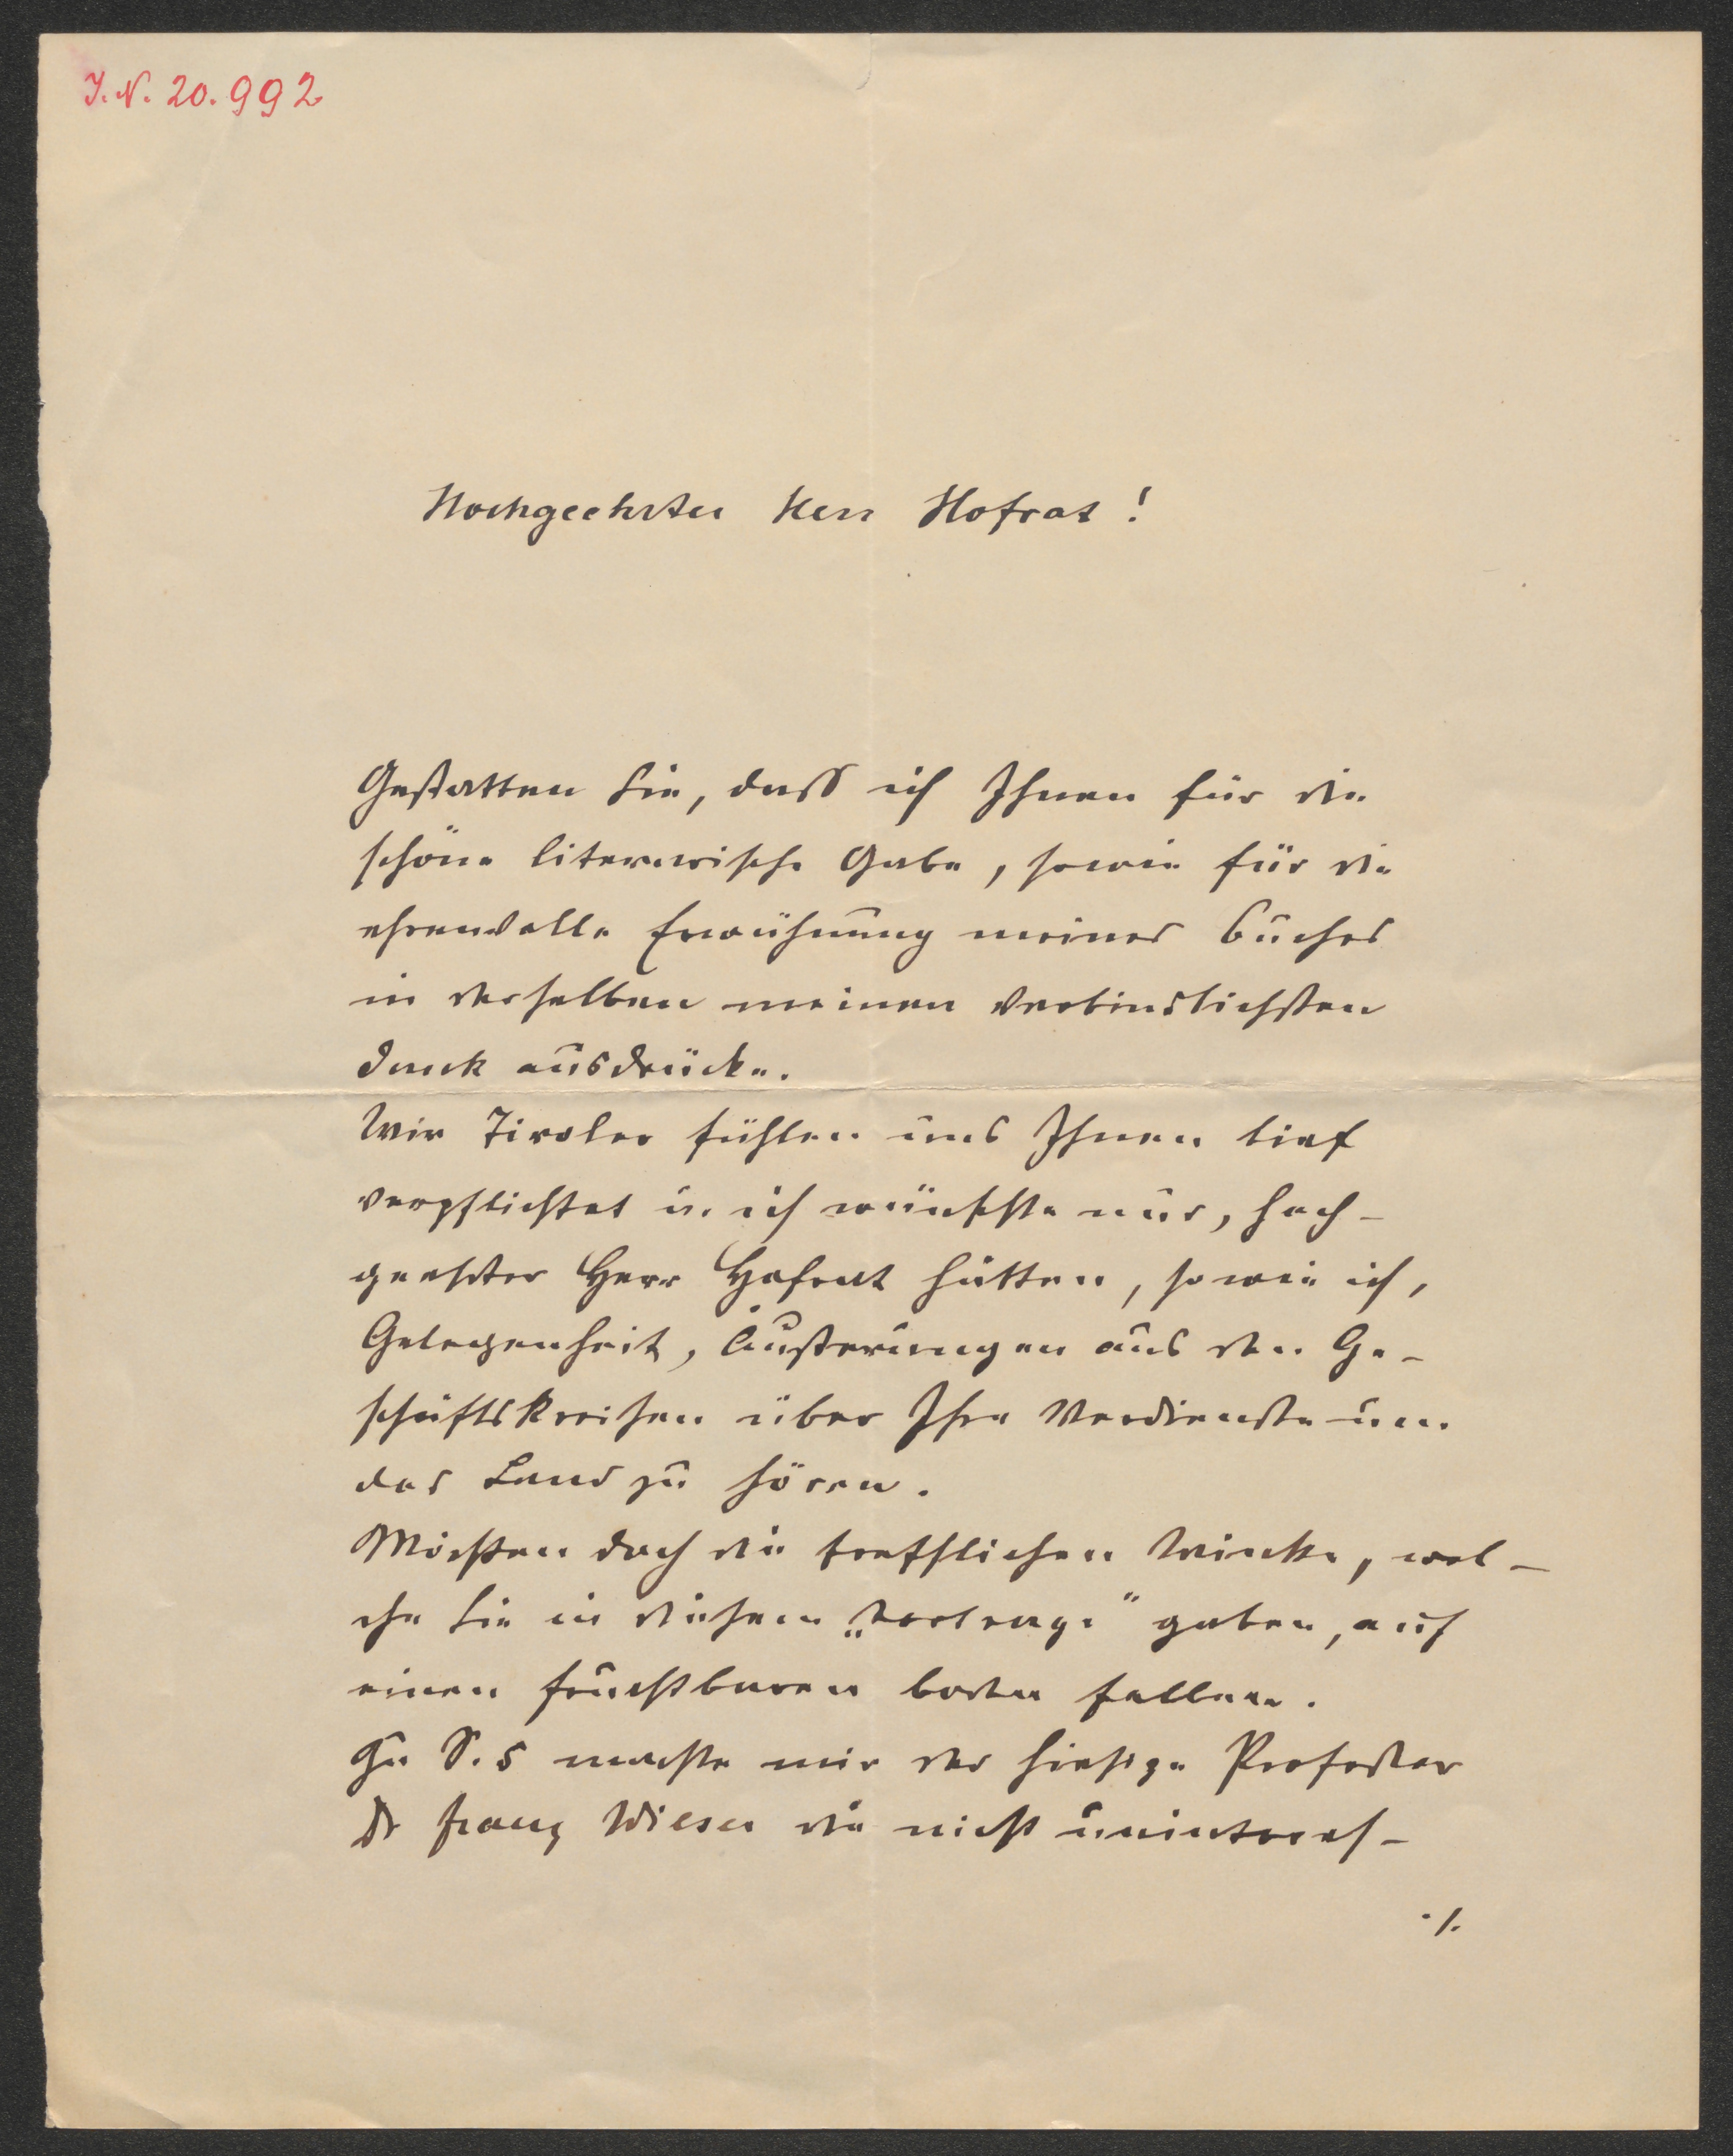 J. N. 20.992
Hochgeehrter Herr Hofrat!
Gestatten Sie, dass ich Ihnen für die
schöne literarische Gabe, sowie für die
ehrenvolle Erwähnung meines Buches
in derselben meinen verbindlichsten
Dank ausdrücke.
Wir Tiroler fühlen uns Ihnen tief
verpflichtet u. ich wünschte nur, hoch-
geehrter Herr Hofrat hätten, so wie ich,
Gelegenheit, Äusserungen aus den Ge-
schäftskreisen über Ihre Verdienste um
das Land zu hören.
Möchten doch die trefflichen Winke, wel-
che Sie in diesem „Vortrage" gaben, auf
einen fruchtbaren Boden fallen.
Zu S. 5 machte mir der hiesige Professor
Dr Franz Wieser die nicht uninteres-
./.